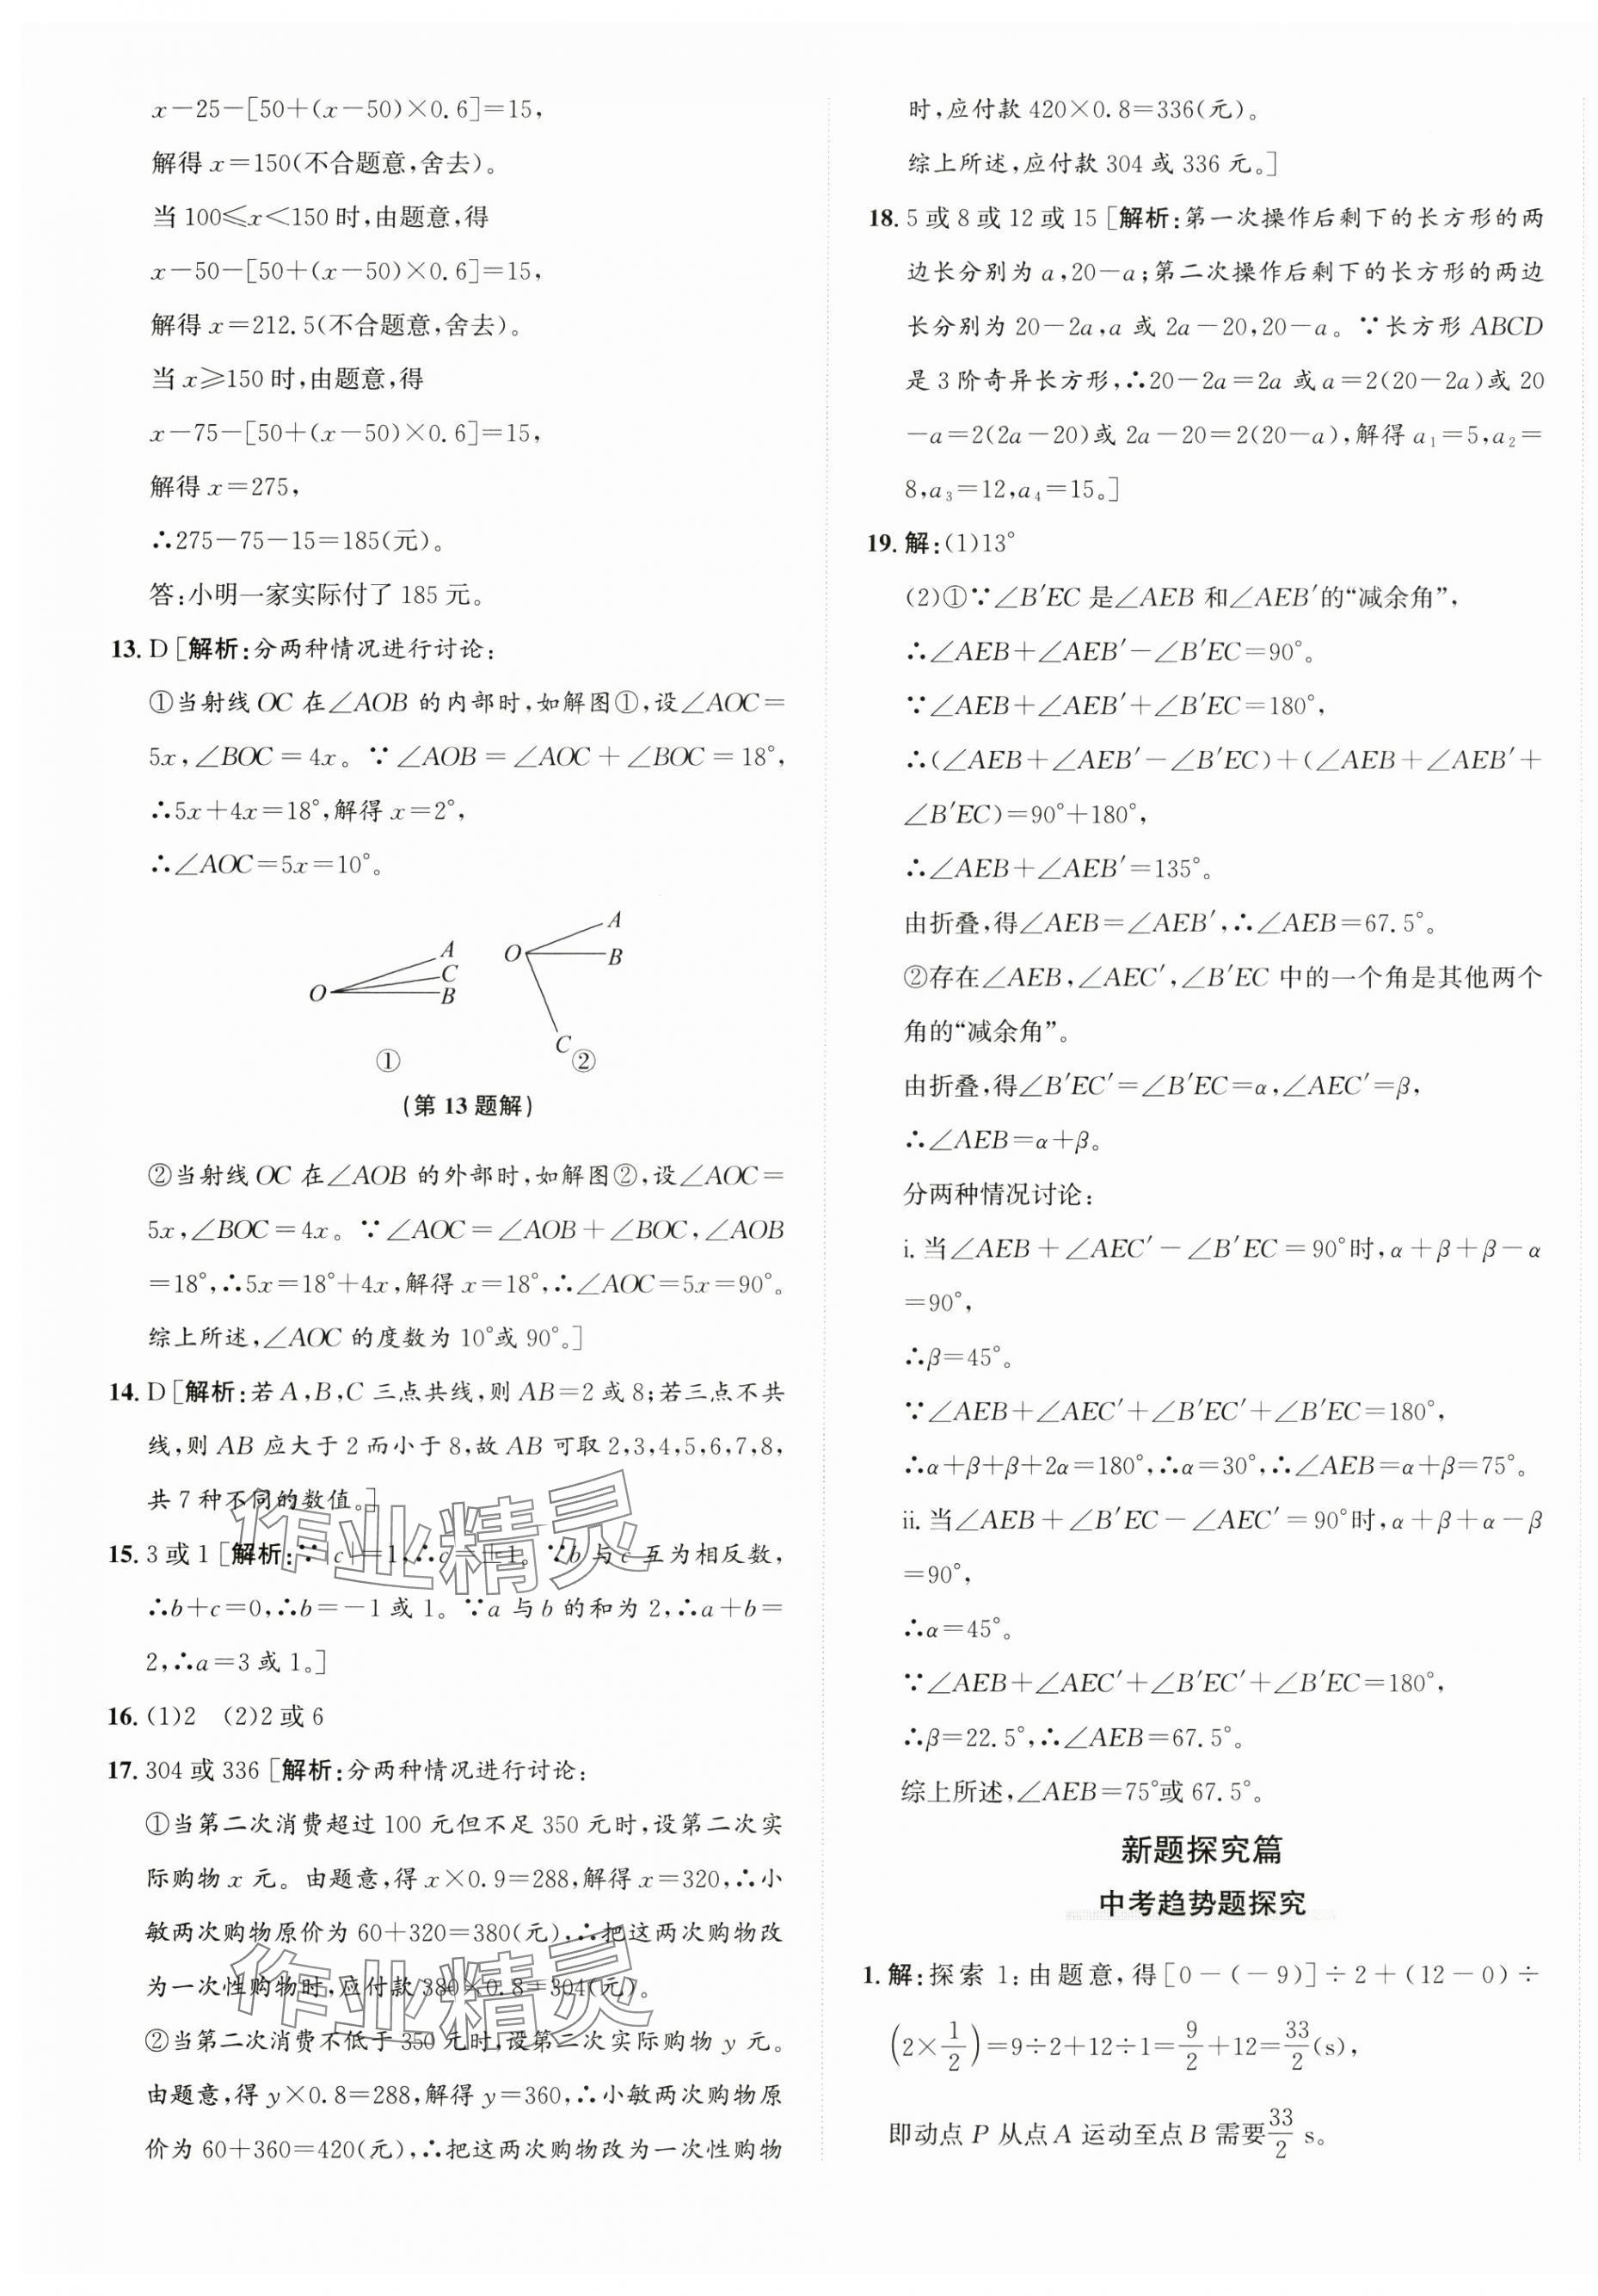 x－25－[50＋(x－50)×0.6]＝15，
解得 x＝150(不合题意，舍去)。
当 100≤x＜150 时，由题意，得
x－50－[50＋(x－50)×0.6]＝15，
解得 x＝212.5(不合题意，舍去)。
当 x≥150 时，由题意，得
x－75－[50＋(x－50)×0.6]＝15，
解得 x＝275，
∴275－75－15＝185(元)。
答：小明一家实际付了 185 元。
13. D [解析：分两种情况进行讨论：
①当射线 OC 在∠AOB 的内部时，如解图①，设∠AOC＝
5x，∠BOC＝4x。∵∠AOB＝∠AOC＋∠BOC＝18°，
∴5x＋4x＝18°，解得 x＝2°，
∴∠AOC＝5x＝10°。
O A C B
①
O A B C
②
(第 13 题解)
②当射线 OC 在∠AOB 的外部时，如解图②，设∠AOC＝
5x，∠BOC＝4x。∵∠AOC＝∠AOB＋∠BOC，∠AOB
＝18°，∴5x＝18°＋4x，解得 x＝18°，∴∠AOC＝5x＝90°。
综上所述，∠AOC 的度数为 10°或 90°。]
14. D [解析：若 A，B，C 三点共线，则 AB＝2 或 8；若三点不共
线，则 AB 应大于 2 而小于 8，故 AB 可取 2，3，4，5，6，7，8，
共 7 种不同的数值。]
15. 3 或 1 [解析：∵ 。∵b 与 c 互为相反数，
∴b＋c＝0，∴b＝－1 或 1。∵a 与 b 的和为 2，∴a＋b＝
2，∴a＝3 或 1。]
16. (1)2 (2)2 或 6
17. 304 或 336 [解析：分两种情况进行讨论：
①当第二次消费超过 100 元但不足 350 元时，设第二次实
际购物 x 元。由题意，得 x×0.9＝288，解得 x＝320，∴小
敏两次购物原价为 60＋320＝380(元)，∴把这两次购物改
为一次性购物时，应付款 380×0.8＝304(元)。
②当第二次消费不低于 350 元时，设第二次实际购物 y 元。
由题意，得 y×0.8＝288，解得 y＝360，∴小敏两次购物原
价为 60＋360＝420(元)，∴把这两次购物改为一次性购物
时，应付款 420×0.8＝336(元)。
综上所述，应付款 304 或 336 元。]
18. 5 或 8 或 12 或 15 [解析：第一次操作后剩下的长方形的两
边长分别为 a，20－a；第二次操作后剩下的长方形的两边
长分别为 20－2a，a 或 2a－20，20－a。∵长方形 ABCD
是 3 阶奇异长方形，∴20－2a＝2a 或 a＝2(20－2a)或 20
－a＝2(2a－20)或 2a－20＝2(20－a)，解得 a₁＝5，a₂＝
8，a₃＝12，a₄＝15。]
19. 解：(1)13°
(2)①∵∠B′EC 是∠AEB 和∠AEB′的“减余角”，
∴∠AEB＋∠AEB′－∠B′EC＝90°。
∵∠AEB＋∠AEB′＋∠B′EC＝180°，
∴(∠AEB＋∠AEB′－∠B′EC)＋(∠AEB＋∠AEB′＋
∠B′EC)＝90°＋180°，
∴∠AEB＋∠AEB′＝135°。
由折叠，得∠AEB＝∠AEB′，∴∠AEB＝67.5°。
②存在∠AEB，∠AEC′，∠B′EC 中的一个角是其他两个
角的“减余角”。
由折叠，得∠B′EC′＝∠B′EC＝α，∠AEC′＝β，
∴∠AEB＝α＋β。
分两种情况讨论：
i. 当∠AEB＋∠AEC′－∠B′EC＝90°时，α＋β＋β－α
＝90°，
∴β＝45°。
∵∠AEB＋∠AEC′＋∠B′EC′＋∠B′EC＝180°，
∴α＋β＋β＋2α＝180°，∴α＝30°，∴∠AEB＝α＋β＝75°。
ii. 当∠AEB＋∠B′EC－∠AEC′＝90°时，α＋β＋α－β
＝90°，
∴α＝45°。
∵∠AEB＋∠AEC′＋∠B′EC′＋∠B′EC＝180°，
∴β＝22.5°，∴∠AEB＝67.5°。
综上所述，∠AEB＝75°或 67.5°。
新题探究篇
中考趋势题探究
1. 解：探索 1：由题意，得[0－(－9)]÷2＋(12－0)÷
(2×1/2)＝9÷2＋12÷1＝9/2＋12＝33/2(s)，
即动点 P 从点 A 运动至点 B 需要33/2 s。
作业精灵
作业精灵